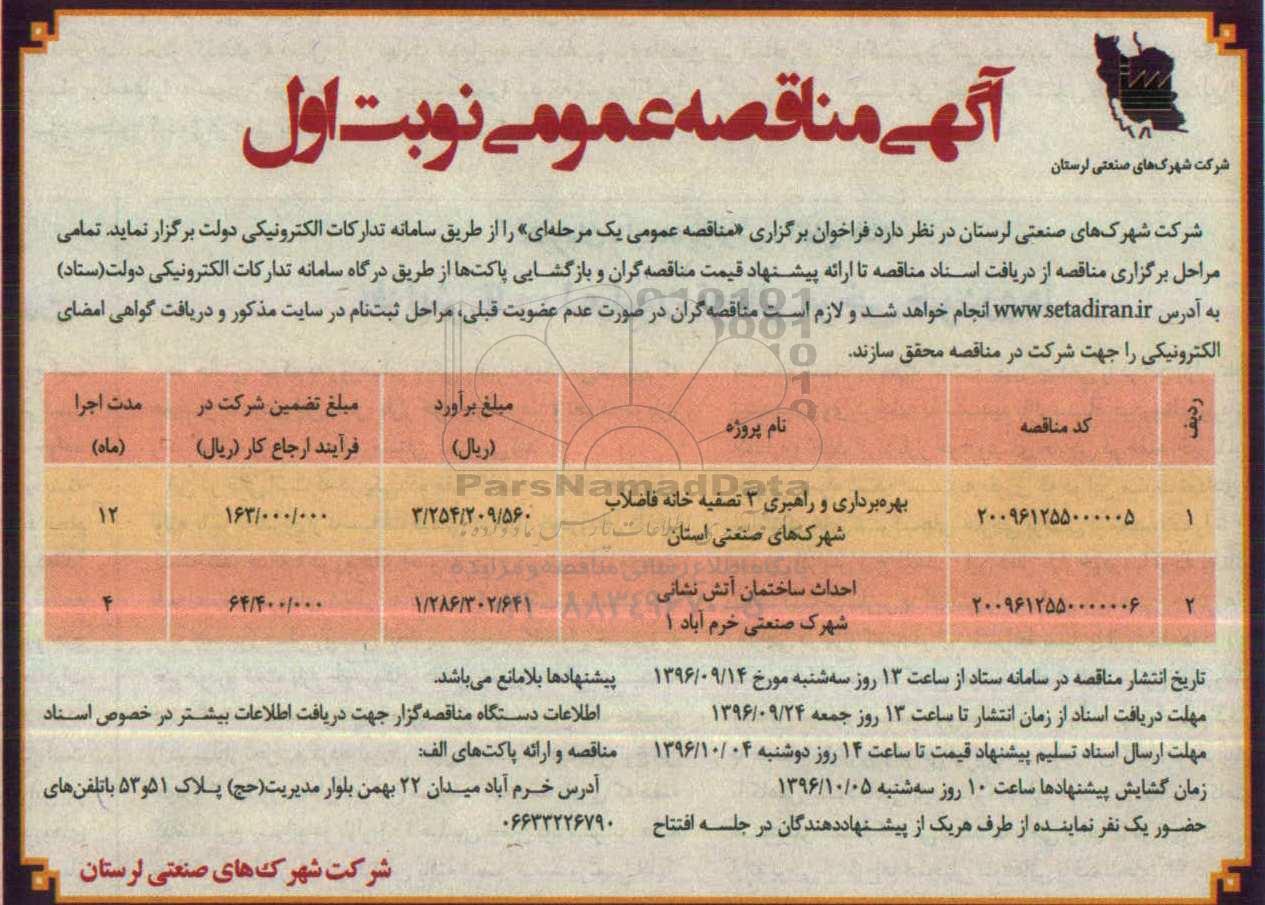 آگهی مناقصه عمومی نوبت اول
شرکت شهرک‌های صنعتی لرستان
شرکت شهرک‌های صنعتی لرستان در نظر دارد فراخوان برگزاری «مناقصه عمومی یک مرحله‌ای» را از طریق سامانه تدارکات الکترونیکی دولت برگزار نماید. تمامی
مراحل برگزاری مناقصه از دریافت اسناد مناقصه تا ارائه پیشنهاد قیمت مناقصه‌گران و بازگشایی پاکت‌ها از طریق درگاه سامانه تدارکات الکترونیکی دولت(ستاد)
به آدرس www.setadiran.ir انجام خواهد شد و لازم است مناقصه‌گران در صورت عدم عضویت قبلی، مراحل ثبت‌نام در سایت مذکور و دریافت گواهی امضای
الکترونیکی را جهت شرکت در مناقصه محقق سازند.
ردیف کد مناقصه نام پروژه مبلغ برآورد (ریال) مبلغ تضمین شرکت در فرآیند ارجاع کار (ریال) مدت اجرا (ماه)
۱ ۲۰۰۹۶۱۲۵۵۰۰۰۰۰۵ بهره‌برداری و راهبری ۳ تصفیه خانه فاضلاب شهرک‌های صنعتی استان ۳/۲۵۴/۲۰۹/۵۶۰ ۱۶۳/۰۰۰/۰۰۰ ۱۲
۲ ۲۰۰۹۶۱۲۵۵۰۰۰۰۰۰۶ احداث ساختمان آتش نشانی شهرک صنعتی خرم آباد ۱ ۱/۲۸۶/۳۰۲/۶۴۱ ۶۴/۴۰۰/۰۰۰ ۴
ParsNamadData
پایگاه اطلاع رسانی مناقصه و مزایده
تاریخ انتشار مناقصه در سامانه ستاد از ساعت ۱۳ روز سه‌شنبه مورخ ۱۳۹۶/۰۹/۱۴
مهلت دریافت اسناد از زمان انتشار تا ساعت ۱۳ روز جمعه ۱۳۹۶/۰۹/۲۴
مهلت ارسال اسناد تسلیم پیشنهاد قیمت تا ساعت ۱۴ روز دوشنبه ۱۳۹۶/۱۰/۰۴
زمان گشایش پیشنهادها ساعت ۱۰ روز سه‌شنبه ۱۳۹۶/۱۰/۰۵
حضور یک نفر نماینده از طرف هریک از پیشنهاددهندگان در جلسه افتتاح
پیشنهادها بلامانع می‌باشد.
اطلاعات دستگاه مناقصه‌گزار جهت دریافت اطلاعات بیشتر در خصوص اسناد
مناقصه و ارائه پاکت‌های الف:
آدرس خرم آباد میدان ۲۲ بهمن بلوار مدیریت(حج) پلاک ۵۱و۵۳ باتلفن‌های
۰۶۶۳۳۲۲۶۷۹۰
شرکت شهرک‌های صنعتی لرستان